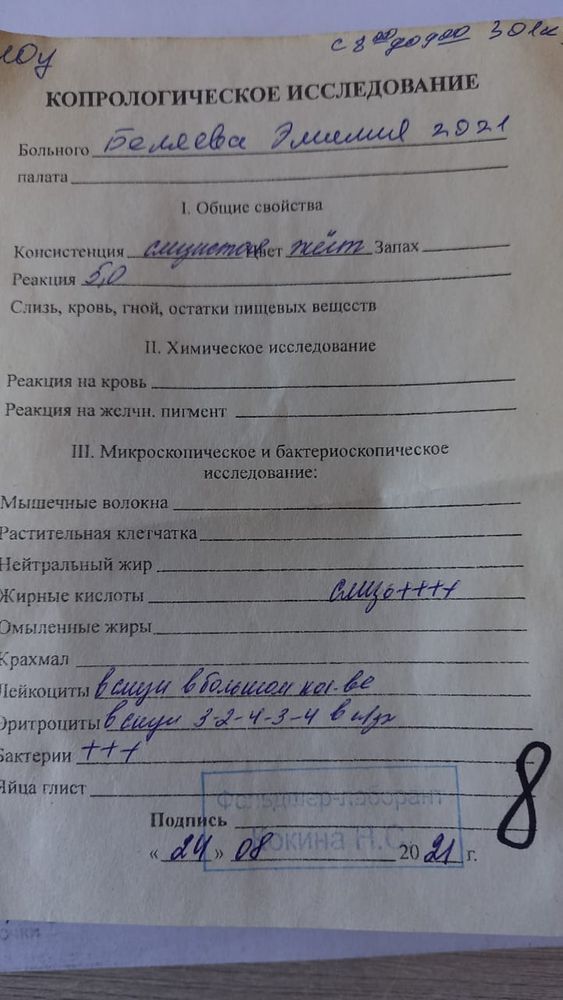 с 8 00 до 9 00 30 1 к
КОПРОЛОГИЧЕСКОЕ ИССЛЕДОВАНИЕ
Больного Беляева Эмилия 2021
палата
I. Общие свойства
Консистенция слизистая цвет жёлт Запах
Реакция 5,0
Слизь, кровь, гной, остатки пищевых веществ
II. Химическое исследование
Реакция на кровь
Реакция на желчн. пигмент
III. Микроскопическое и бактериоскопическое
исследование:
Мышечные волокна
Растительная клетчатка
Нейтральный жир
Жирные кислоты слизь ++++
Омыленные жиры
Крахмал
Лейкоциты в слизи в большом кол-ве
Эритроциты в слизи 3-2-4-3-4 в п/зр
Бактерии +++
Яйца глист
Фельдшер-лаборант
8
Подпись
Кокина Н.С.
« 24 » 08 20 21 г.